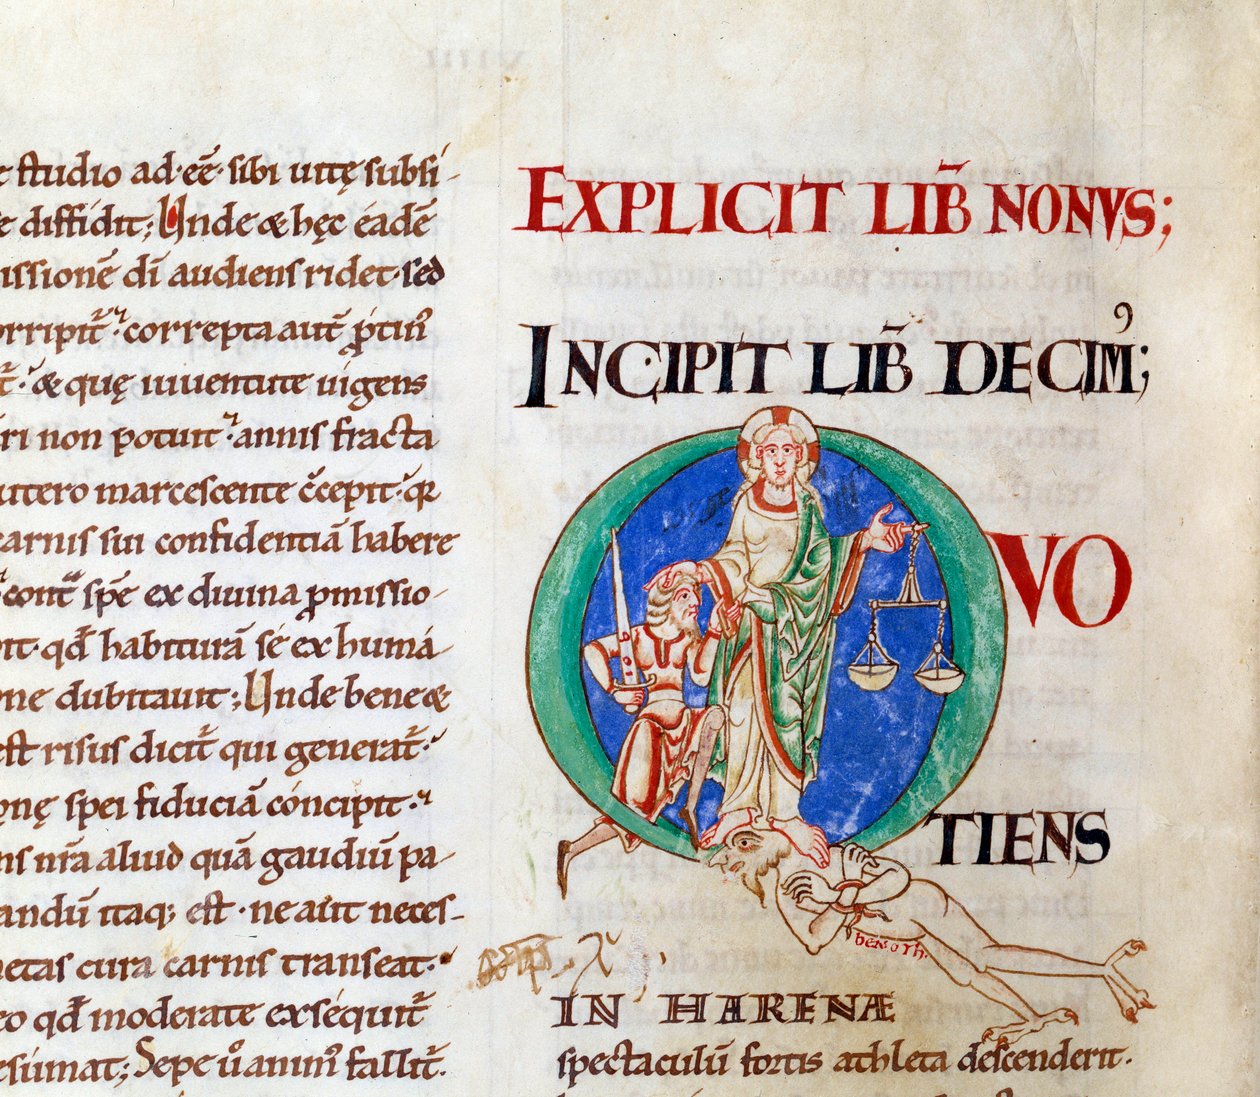 studio ad·eē· sibi uitę subsi-
diffidit; Unde & hęc éadē
issionē dī audiens ridet· sed
correpta aut̄
& quę iuuentute uigens
ri non potuit· annis fracta
utero marcescente c̄cepit·
carnis sui confidentiā habere
spē ex diuina p̄missio-
qđ habiturā sé ex humá-
ne dubitauit; Unde bene &
est risus dicit̄ qui generat̄·
nę spei fiduciā cóncipit·
nr̄a aliud quā gaudiū pa-
andū itaq; est· ne aut neces-
etas cura carnis transeat·
qđ moderate exséquit̄
esúmat; Sepe ů animꝰ fallit̄·
EXPLICIT LIB̄ NONVS;
INCIPIT LIB̄ DECIMꝰ;
QVO
TIENS
benoth.
IN HARENÆ
spectaculū fortis athleta descenderit·